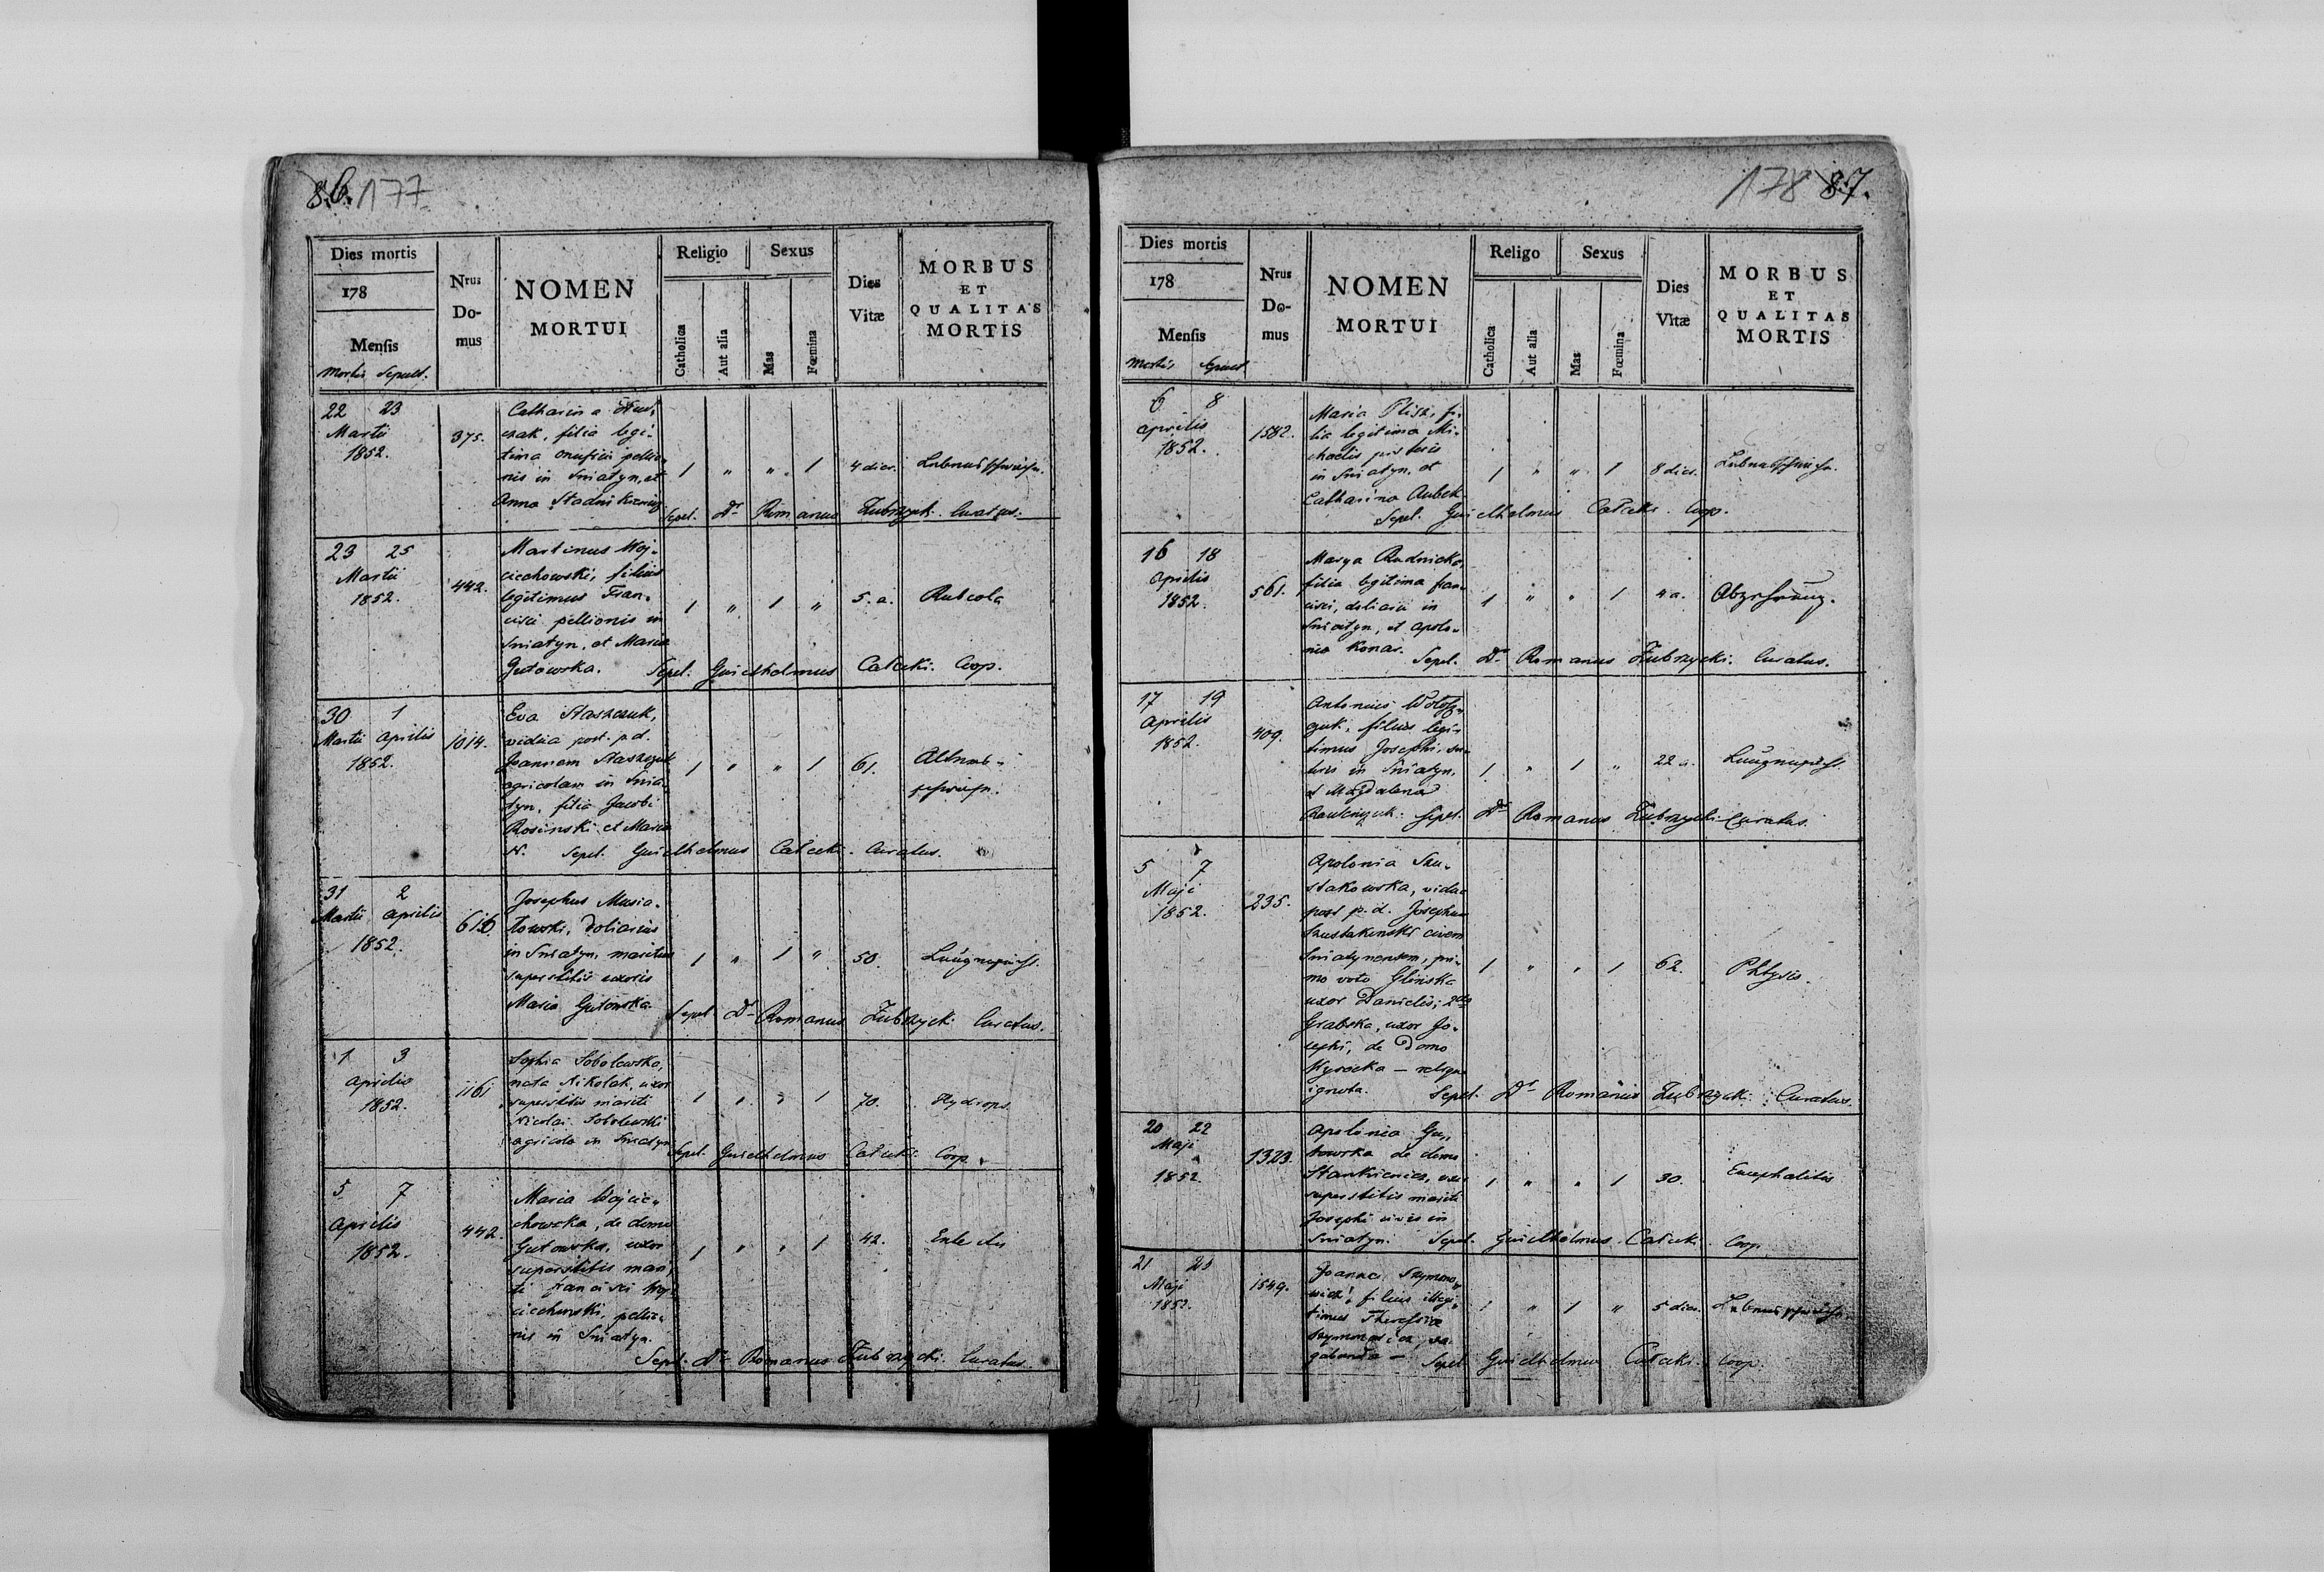 86. 177
Dies mortis
178
Mensis
Mortis Sepult.
Nrus Do-mus
NOMEN
MORTUI
Religio
Catholica
Aut alia
Sexus
Mas
Fœmina
Dies
Vitæ
MORBUS
ET
QUALITAS
MORTIS
22 23
Martii
1852.
375.
Catharina
czak, filia legi-
tima Onufrii pellio-
nis in Sniatyn, et
Anna
1 " " 1
4 dier.
Sepel. Dr Romanus Zubrzycki. Curatus.
23 25
Martii
1852.
442.
Martinus Woj-
ciechowski, filius
legitimus Fran-
cisci pellionis in
Sniatyn, et Maria
Gutowska.
1 " 1 "
5. a.
Rubeola
Sepel. Guilhelmus Całecki. Coop.
30 1
Martii Aprilis
1852.
1014.
Eva Staszczuk,
vidua post p.d.
Joannem Staszczuk
agricolam in Snia-
tyn, filia Jacobi
Rosinski et Maria
N.
1 " " 1
61.
Sepel. Guilhelmus Całecki. Curatus.
31 2
Martii Aprilis
1852.
Josephus Musia-
łowski, Doliarius
in Sniatyn, maritus
superstitis uxoris
Maria Gutowska.
1 " 1 "
50.
Sepel. Dr Romanus Zubrzycki. Curatus.
1 3
Aprilis
1852.
1161
Sophia Sobolewska,
nata Nikolak, uxor
superstitis mariti
Nicolai Sobolewski
agricola in Sniatyn
1 " " 1
70.
Hydrops
Sepel. Guilhelmus Całecki. Coop.
5 7
Aprilis
1852.
442.
Maria Wojcie-
chowska, de domo
Gutowska, uxor
superstitis mari-
ti Francisci Woj-
ciechowski, pellio-
nis in Sniatyn.
1 " " 1
42.
Sepel. Dr Romanus Zubrzycki. Curatus
178 87.
Dies mortis
178
Mensis
Mortis Sepult.
Nrus Do-mus
NOMEN
MORTUI
Religo
Catholica
Aut alia
Sexus
Mas
Fœmina
Dies
Vitæ
MORBUS
ET
QUALITAS
MORTIS
6 8
Aprilis
1852.
1582.
Maria Plisz, fi-
lia legitima Mi-
chaelis pistoris
in Sniatyn, et
Catharina
1 " " 1
8 dier.
Sepel. Guilhelmus Całecki. Coop.
16 18
Aprilis
1852.
561.
Marya Rudnicka,
filia legitima Fran-
cisci, doliarii in
Sniatyn, et Apolo-
nia Konar.
1 " " 1
4 a.
Abzehrung.
Sepel. Dr Romanus Zubrzycki. Curatus.
17 19
Aprilis
1852.
409.
Antonius
czuk, filius legi-
timus Josephi, su-
toris in Sniatyn,
et Magdalena
1 " 1 "
22 a.
Sepel. Dr Romanus Zubrzycki Curatus.
5 7
Maji
1852.
235.
Apolonia Szu-
stakowska, vidua
post p. d. Josephum
Szustakowski civem
Sniatynensem, pri-
mo voto Glinska
uxor Danielis; 2do
Grabska, uxor Jo-
sephi, de Domo
Wysocka — reliqua
ignota.
1 " " 1
62.
Phtysis.
Sepel. Dr Romanus Zubrzycki. Curatus.
20 22
Maji
1852
1323.
Apolonia Gu-
towska de domo
Stankiewicz, uxor
superstitis mariti
Josephi civis in
Sniatyn.
1 " " 1
30.
Encephalitis
Sepel. Guilhelmus Całecki Coop.
21 23
Maji
1852.
1549.
Joannes Szymono-
wicz, filius illegi-
timus Theressiæ
Szymonowicz, va-
gabunda —
1 " 1 "
5 dier.
Sepel. Guilhelmus Całecki. Coop.